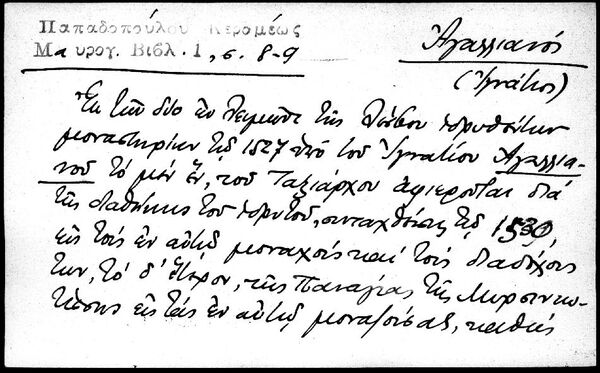 Παπαδοπούλου Κεραμέως
Μαυρογ. Βιβλ. 1, σ. 8-9
Ἀγαλλιανός
(Ἰγνάτιος)
Ἐκ τῶν δύο ἐν Λειμῶνι τῆς Λέσβου ἱδρυθέντων
μοναστηρίων τῷ 1527 ὑπό τοῦ Ἰγνατίου Ἀγαλλια-
νοῦ τό μέν ἕν, τοῦ Ταξιάρχου ἀφιεροῦται διά
τῆς διαθήκης τοῦ ἱδρυτοῦ, συνταχθείσης τῷ 1530,
εἰς τούς ἐν αὐτῷ μοναχούς καί τούς διαδόχους
των, τό δ' ἕτερον, τῆς Παναγίας τῆς Μυρσινιω-
τίσσης εἰς τάς ἐν αὐτῷ μοναζούσας, καθώς